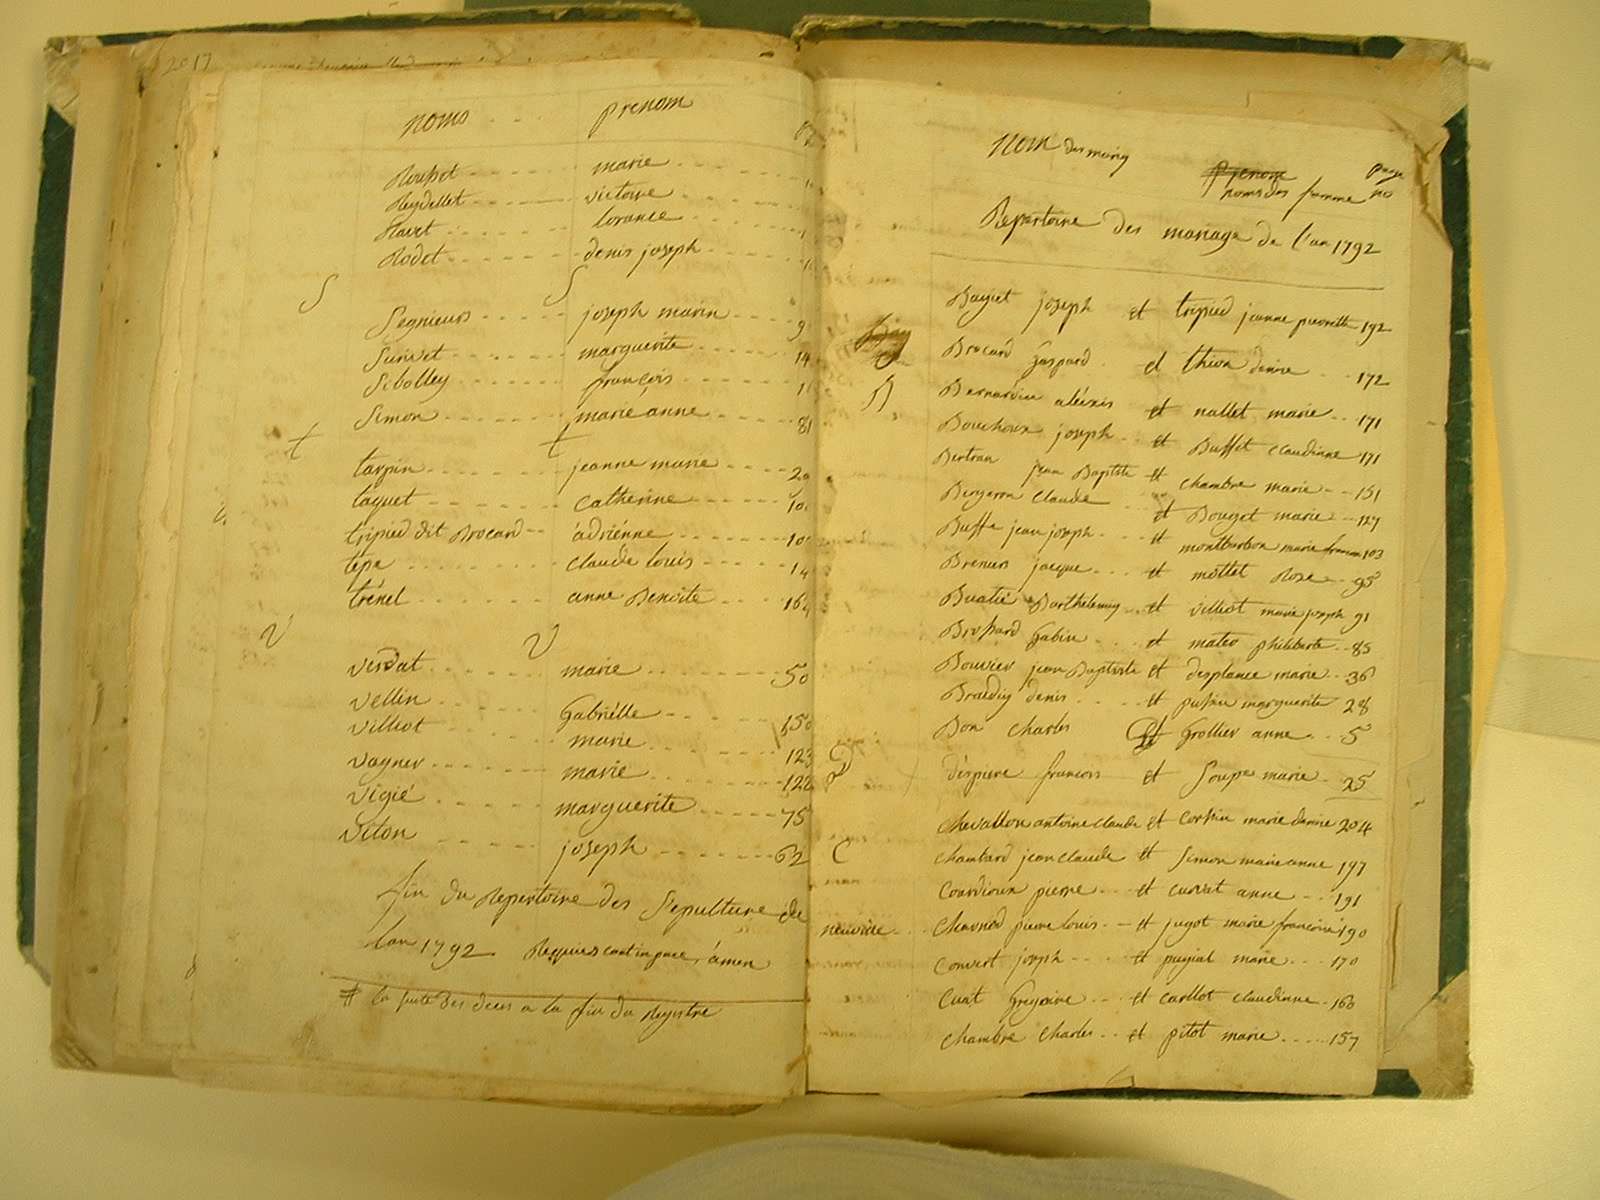 noms prenom
Rousset marie
Reydellet victoire
Ravet lorance
Rodet denis joseph
S S
Segnieurs joseph marin 9
Surivet marguerite 14
Sibolley françois
Simon marie anne 81
t t
tarpin jeanne marie 20
taquet catherine 10
tripied dit Brocard adriénne 10
tepe claude louis 14
trénel anne Benoite 164
V V
verdat marie 50
vellin Gabriélle 150
villiot marie 123
vagner marie 122
vigié marguerite 75
viton joseph 62
fin du Repertoire des Sepulture de
l'an 1792 Requiescant in pace, ámen
# la suite des deces a la fin du Registre
Nom des mariy prenom page
noms des femme no
Repertoire des mariage de l'an 1792
Bagiet joseph et tripied jeanne pierrette 192
Brocard Gaspard et thion denise 172
B
Bernardin aléxis et nallet marie 171
Bouchoux joseph et Buffet Claudinne 171
Bertran jean Baptiste et chambre marie 151
Bergeron Claude et Bouget marie 127
Buffe jean joseph et montbarbon marie francoise 103
Brenier jacque et mottet Rose 95
Buatié Barthelemy et villiot marie joseph 91
Brossard Gabin et mateo philiberte 85
Bouvier jean Baptiste et desplance marie 36
denis et marguerite 28
Bon Charles et Grollier anne 5
D
déspiere francois et Soupe marie 25
Chevallon antoine claude et marie denise 204
C
Chambard jean claude et Simon marie anne 197
Courdioux pierre et curvat anne 191
neuville Charnod pierre louis et jugot marie francoise 190
Convert joseph et pugiat marie 170
Cuat Grégoire et carllot claudinne 160
Chambre Charles et pitot marie 157